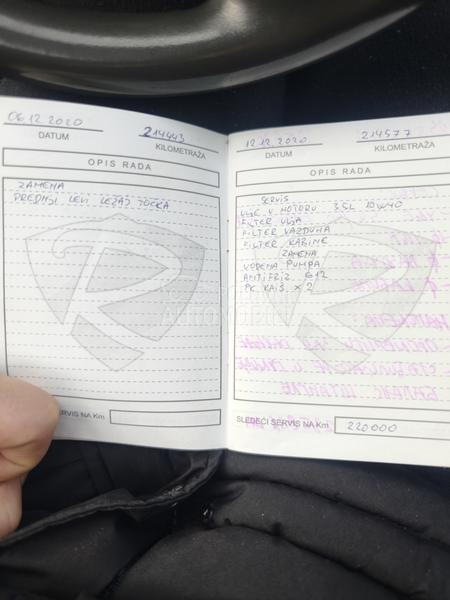 06.12.2020
214443
DATUM
KILOMETRAŽA
OPIS RADA
ZAMENA
PREDNJI LEVI LEŽAJ TOČKA
SERVIS NA Km
12.12.2020
214577
DATUM
KILOMETRAŽA
OPIS RADA
SERVIS
ULJE U MOTORU 3.5L 10W40
FILTER ULJA
FILTER VAZDUHA
FILTER KABINE
ZAMENA
VODENA PUMPA
ANTIFRIZ G12
PK KAIŠ X 2
SLEDEĆI SERVIS NA Km
220000